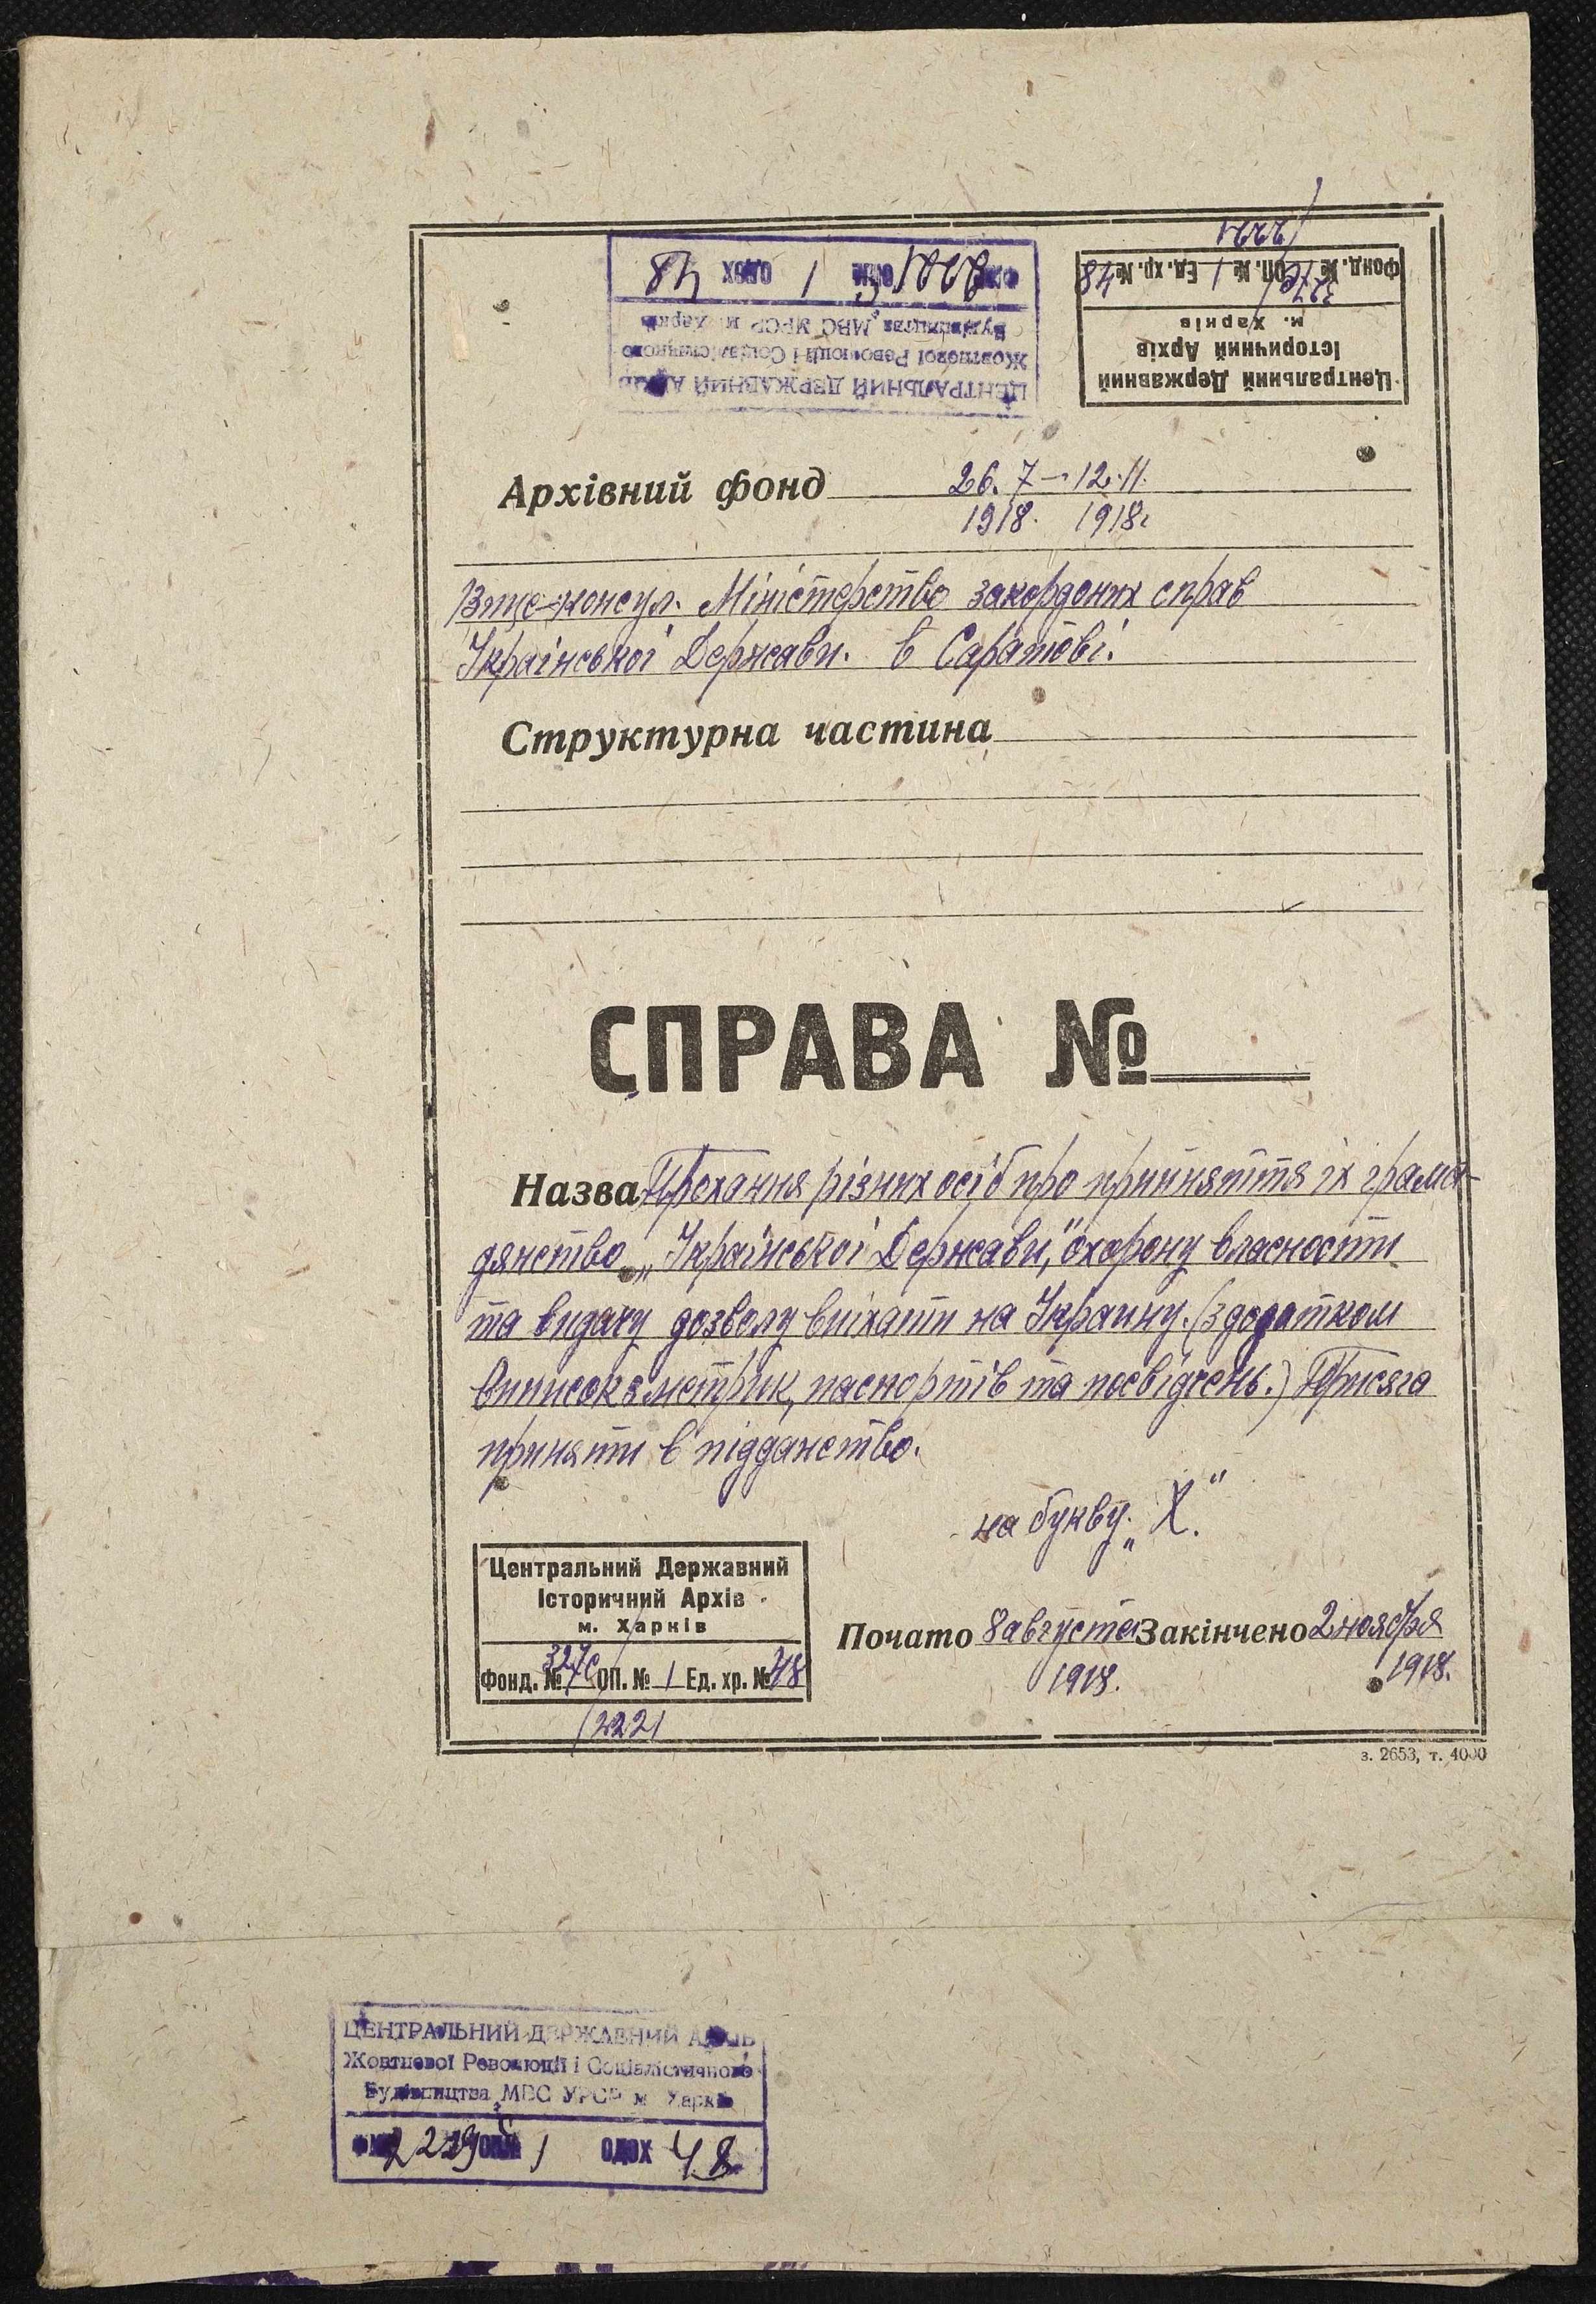 2221
Фонд. № 327с оп. № 1 Ед. хр. № 48
м. Харків
Історичний Архів
Центральний Державний
оп 1 одох 48
Будівництва МВС УРСР м. Харків
Жовтневої Революції і Соціалістичного
ЦЕНТРАЛЬНИЙ ДЕРЖАВНИЙ АРХІВ
Архівний фонд 26.7 — 12.11.
1918. 1918г
Віце-консул. Міністерство закордоних справ
Української Держави. в Саратові.
Структурна частина
СПРАВА №
Назва Прохання різних осіб про прийняття їх грома-
дянство „Української Держави," охорону власности
та видачу дозволу виїхати на Украину. (з додатком
виписок з метрик, паспортів та посвідчень.) Присяга
приняти в підданство.
на букву „Х."
Центральний Державний
Історичний Архів
м. Харків
Фонд. № 327с ОП. № 1 Ед. хр. № 48
2221
Почато 8 августа Закінчено 2 ноября
1918. 1918.
з. 2653, т. 4000
ЦЕНТРАЛЬНИЙ ДЕРЖАВНИЙ АРХІВ
Жовтневої Революції і Соціалістичного
Будівництва МВС УРСР м Харків
оп 1 одох 48